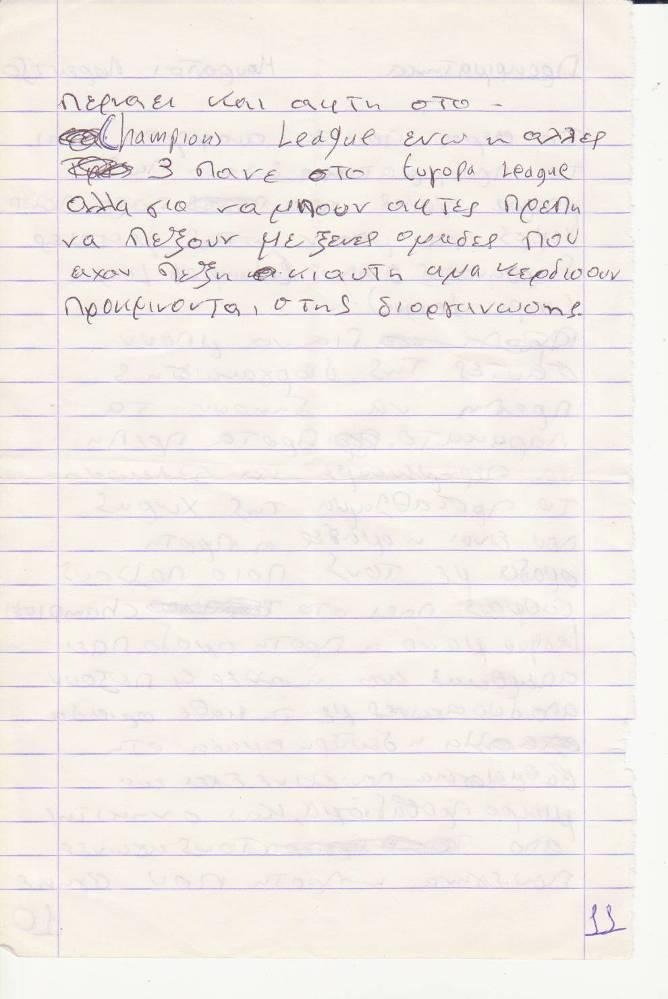 περναει και αυτη στο -
Champions League ενω η αλλες
3 πανε στο Europa League
αλλα για να μπουν αυτες πρεπη
να πεξουν με ξενες ομαδες που
εχουν πεξη κι αυτη αμα κερδισουν
προκρινονται στης διοργανωσης.
11